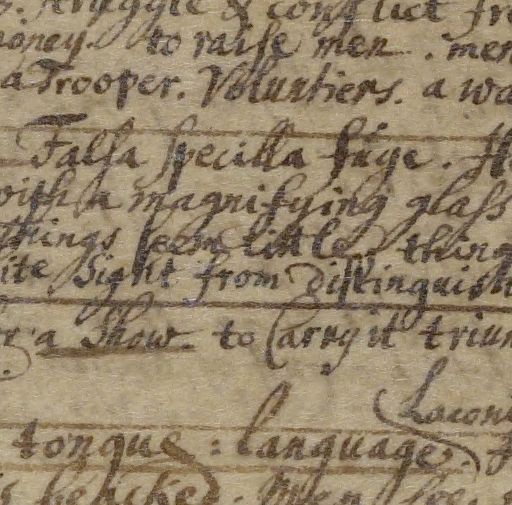 struggle & conflict
money. to raise men. men
a Trooper. Voluntiers. a
Falsa specilla fuge.
with a magnifying glass
things seem little, thing
sight from distinguish
a show. to Carry it
Laconi
tongue : language.